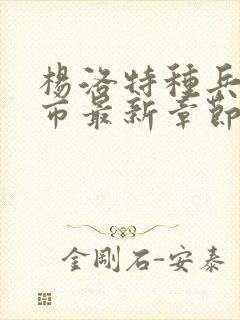 楊洛特種兵
市最新章節
金剛石-安泰